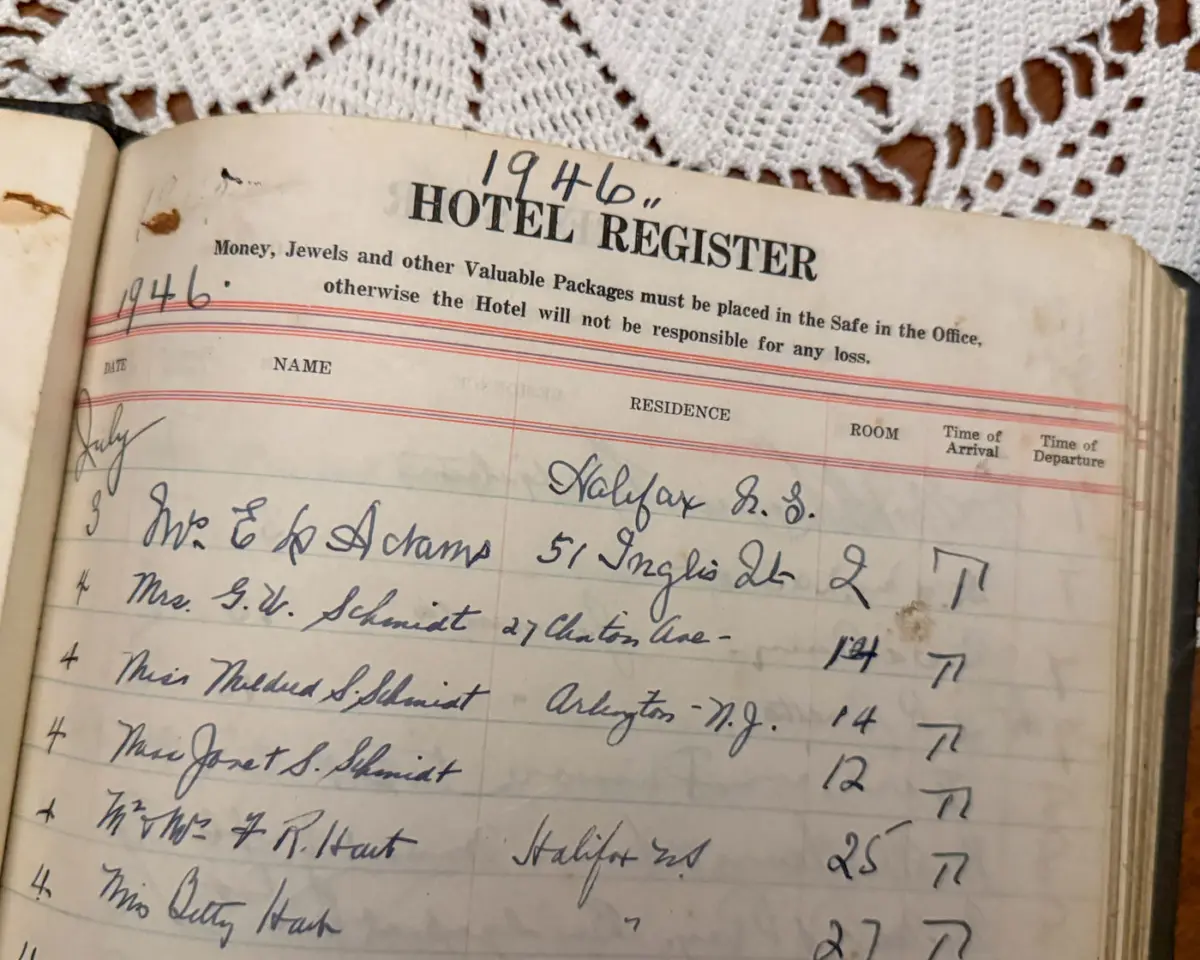 1946"
HOTEL REGISTER
Money, Jewels and other Valuable Packages must be placed in the Safe in the Office,
otherwise the Hotel will not be responsible for any loss.
1946.
DATE NAME RESIDENCE ROOM Time of Arrival Time of Departure
July
Halifax N. S.
3 Mrs. E Adams 51 Inglis St 2
4 Mrs. G. W. Schmidt 27 Clinton Ave - 14
4 Miss Mildred S. Schmidt " Arlington - N.J. 14
4 Miss Janet S. Schmidt 12
4 Mr & Mrs F R. Hart Halifax NS 25
4 Miss Betty Hart " 27